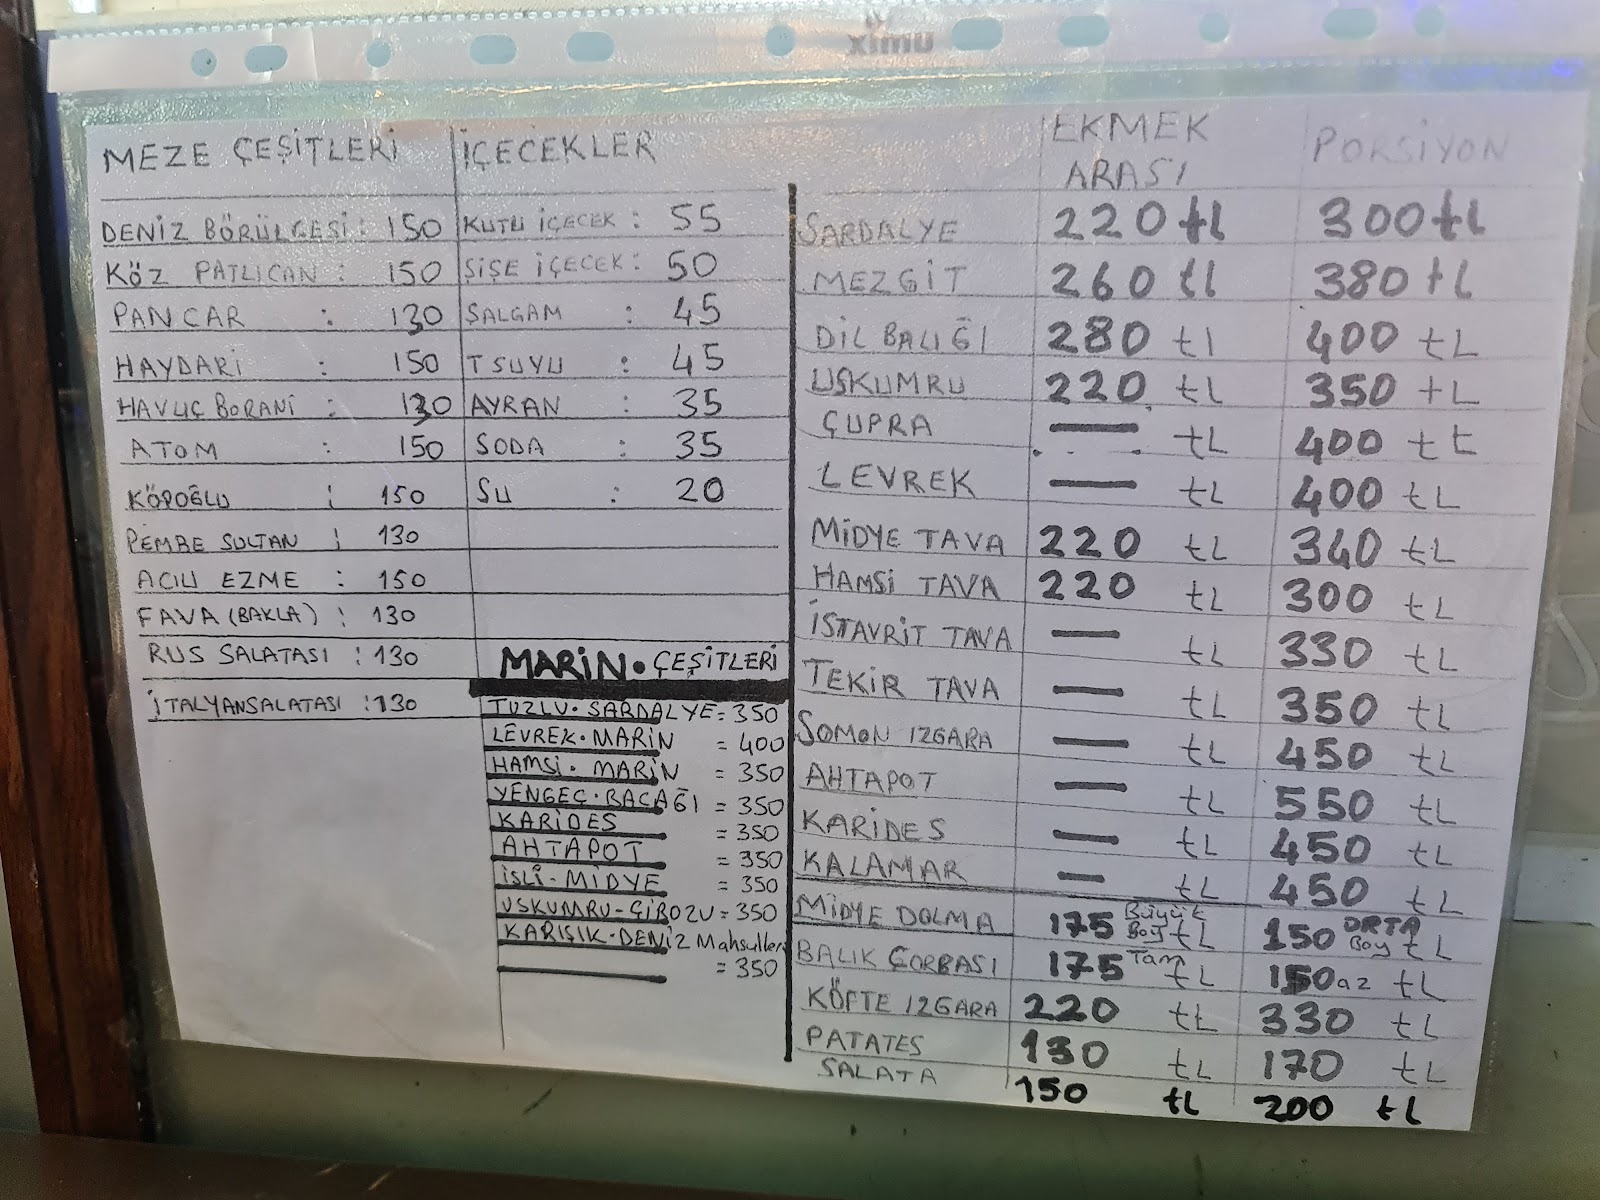 ximu
MEZE ÇEŞİTLERİ
DENİZ BÖRÜLCESİ : 150
KÖZ PATLICAN : 150
PANCAR : 130
HAYDARİ : 150
HAVUÇ BORANİ : 130
ATOM : 150
KÖPOĞLU : 150
PEMBE SULTAN : 130
ACILI EZME : 150
FAVA (BAKLA) : 130
RUS SALATASI : 130
İTALYANSALATASI : 130
İÇECEKLER
KUTU İÇECEK : 55
ŞİŞE İÇECEK : 50
ŞALGAM : 45
T SUYU : 45
AYRAN : 35
SODA : 35
SU : 20
MARİN • ÇEŞİTLERİ
TUZLU • SARDALYE = 350
LEVREK • MARİN = 400
HAMSİ • MARİN = 350
YENGEÇ • BACAĞI = 350
KARİDES = 350
AHTAPOT = 350
İSLİ - MİDYE = 350
USKUMRU - ÇİROZU = 350
KARIŞIK • DENİZ Mahsulleri
= 350
EKMEK ARASI PORSİYON
SARDALYE 220 tl 300 tl
MEZGİT 260 tl 380 tL
DİL BALIĞI 280 tl 400 tL
USKUMRU 220 tL 350 tL
ÇUPRA — tL 400 tL
LEVREK — tL 400 tL
MİDYE TAVA 220 tL 340 tL
HAMSİ TAVA 220 tL 300 tL
İSTAVRİT TAVA — tL 330 tL
TEKİR TAVA — tL 350 tL
SOMON IZGARA — tL 450 tL
AHTAPOT — tL 550 tL
KARİDES — tL 450 tL
KALAMAR — tL 450 tL
MİDYE DOLMA 175 Büyük Boy tL 150 ORTA Boy tL
BALIK ÇORBASI 175 Tam tL 150 az tL
KÖFTE IZGARA 220 tL 330 tL
PATATES 130 tL 170 tL
SALATA 150 tL 200 tL